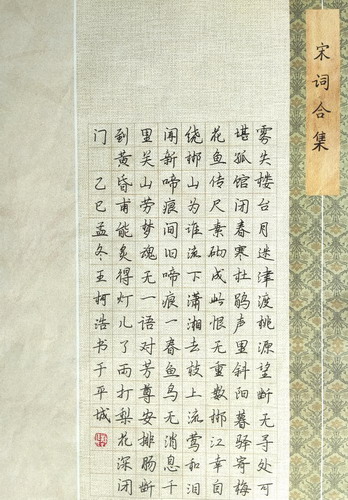 宋词合集
雾失楼台月迷津渡桃源望断无寻处可
堪孤馆闭春寒杜鹃声里斜阳暮驿寄梅
花鱼传尺素砌成此恨无重数郴江幸自
绕郴山为谁流下潇湘去枝上流莺和泪
闻新啼痕间旧啼痕一春鱼鸟无消息千
里关山劳梦魂无一语对芳尊安排肠断
到黄昏甫能炙得灯儿了雨打梨花深闭
门 乙巳孟冬王柯浩书于平城